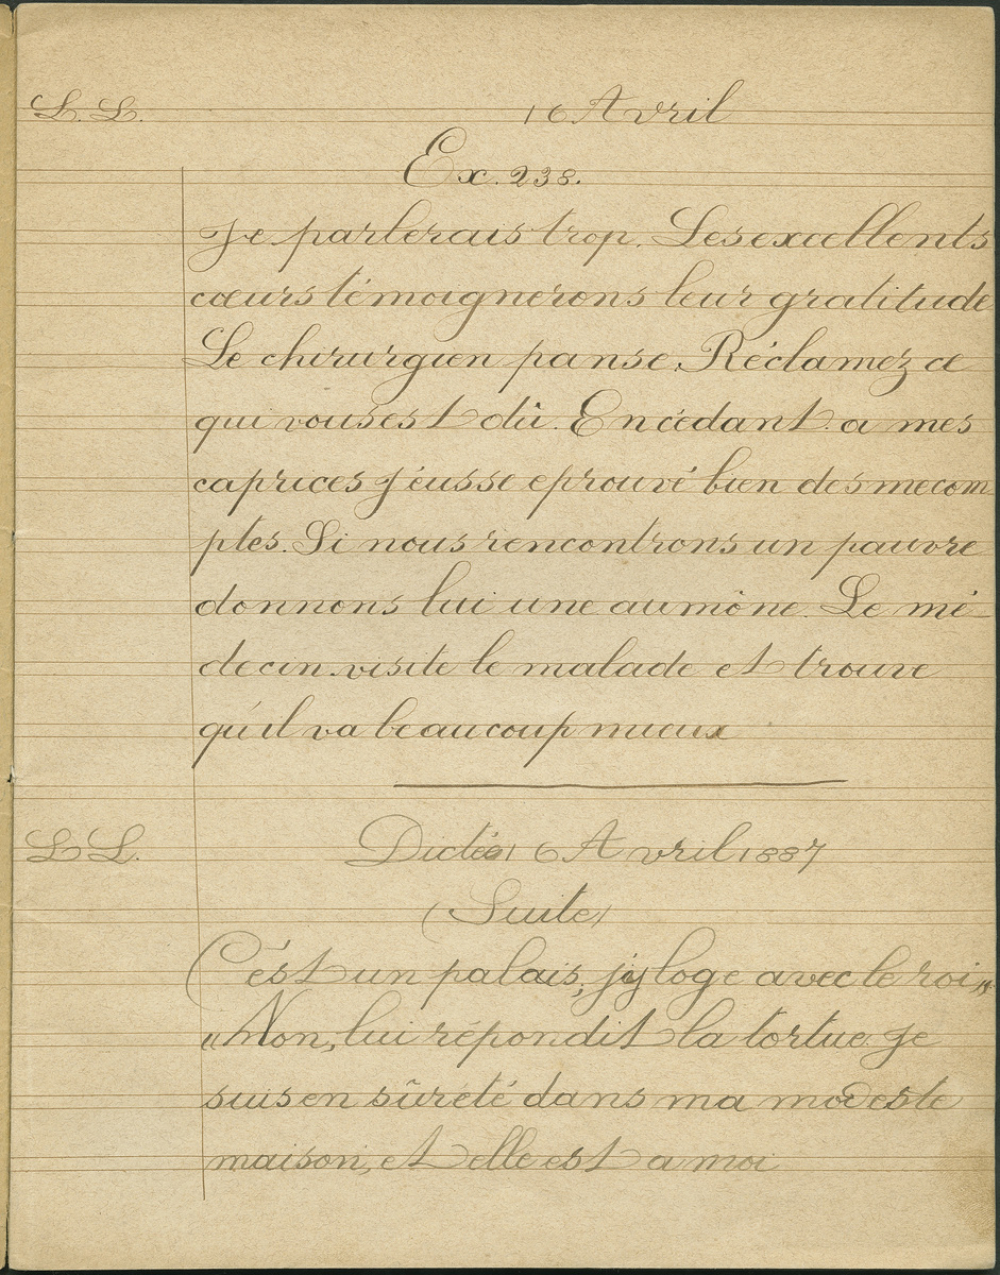 L. L. 16 Avril
Ex. 238.
Je parlerais trop. Les excellents
cœurs témoignerons leur gratitude
Le chirurgien panse. Réclamez ce
qui vous est dû. En cédant a mes
caprices j'éusse eprouvé bien des mecom
ptes. Si nous rencontrons un pauvre
donnons lui une aumône. Le mé-
decin visite le malade et trouve
qu'il va beaucoup mieux
L L. Dictée 16 Avril 1887
(Suite)
C'ést un palais, j'y loge avec le roi"
"Non, lui répondit la tortue je
suis en sûreté dans ma modeste
maison, et elle est a moi